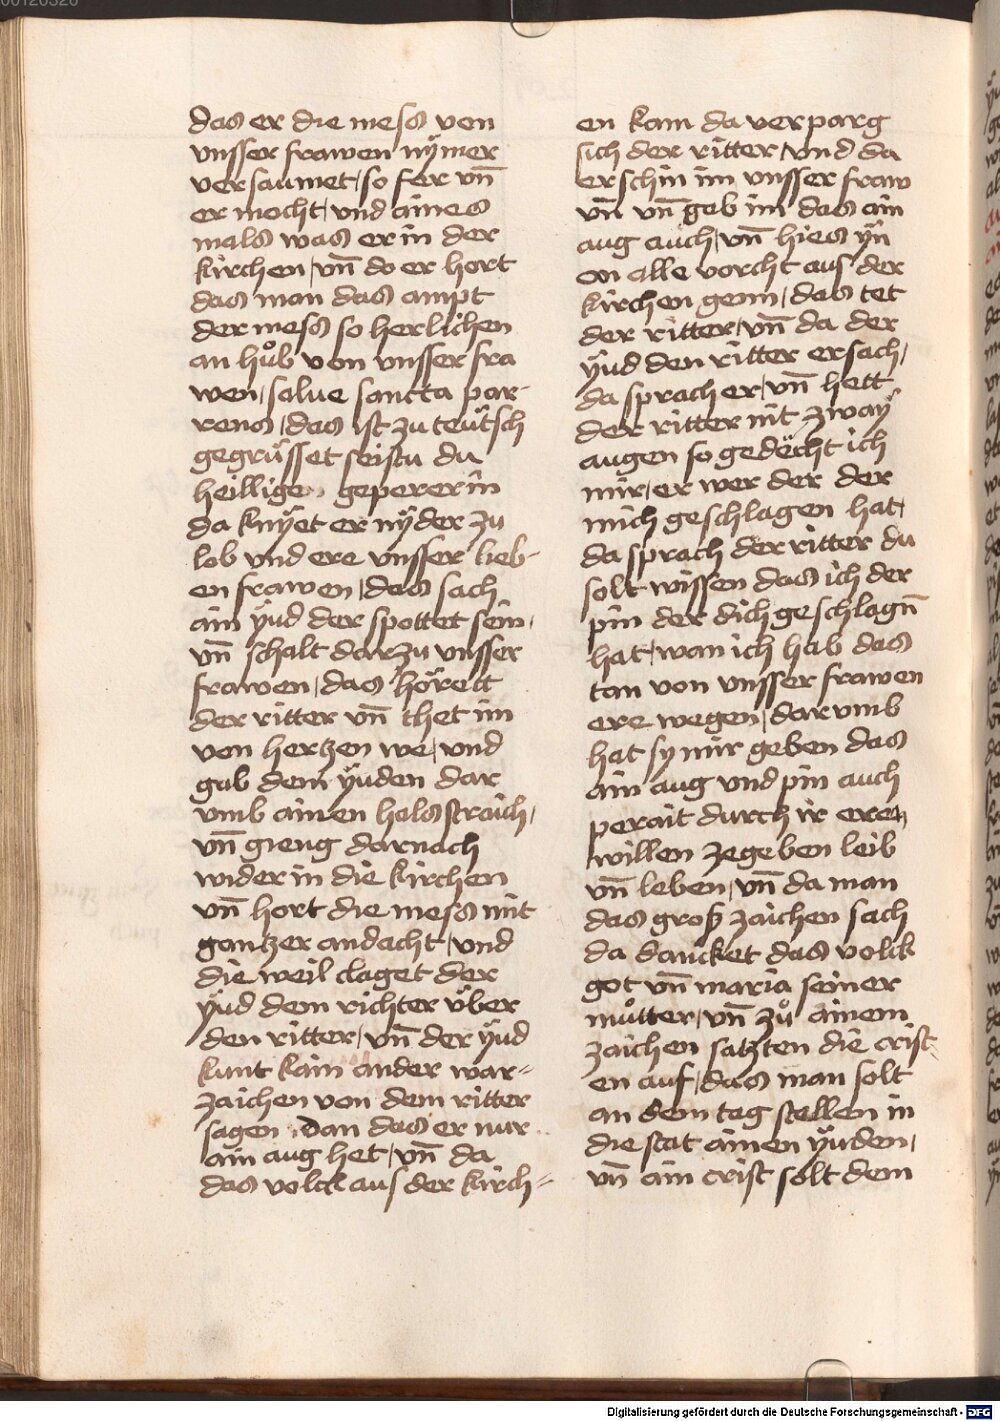 das er die mess von
vnsser frawen nÿmer
versaumet / so fer vn̄
er mocht / vnd aines
mals was er in der
kirchen / vn̄ do er hort
das man das ampt
der mess so herlichen
an hůb von vnsser fra
wen / salue sancta par-
rens / das ist zu teütsch
gegrüsset seistu du
heilligen gepererin
da knÿet er nÿder zu
lob vnd ere vnsser lieb-
en frawen / das sach
ain ÿud der spottet sein /
vn̄ schalt darzu vnsser
frawen / das hörett
der ritter vn̄ thet im
von hertzen we / vnd
gab dem ÿuden dar
vmb ainen halsstraich /
vn̄ gieng darnach
wider in die kirchen
vn̄ hort die mess mit
gantzer andacht / vnd
die weil claget der
ÿud dem richter über
den ritter / vn̄ der ÿud
kunt kain ander war-
zaichen von dem ritter
sagen dan das er nur
ain aug het / vn̄ da
das volck aus der kirch-
en kam da verparg
sich der ritter / vnd da
erschin im vnsser fraw
vn̄ vn̄ gab im das ain
aug auch / vn̄ hies ÿn
on alle vorcht aus der
kirchen genn / das tet
der ritter / vn̄ da der
ÿud den ritter ersach /
da sprach er / vn̄ hett
der ritter nit zwaÿ
augen so gedëcht ich
mir / er wer der der
mich geschlagen hat /
da sprach der ritter du
solt wissen das ich der
pin der dich geschlagn̄
hat / wan ich hab das
tan von vnsser frawen
ere wegen / dar vmb
hat sy mir geben das
ain aug vnd pin auch
perait durch ir eren
willen zegeben leib
vn̄ leben / vn̄ da man
das groß zaichen sach
da dancket das volck
got vn̄ maria seiner
můtter / vn̄ zů ainem
zaichen satzten die crist-
en auf / das man solt
an dem tag stellen in
die stat ainen ÿuden /
vn̄ ain crist solt dem
Digitalisierung gefördert durch die Deutsche Forschungsgemeinschaft - DFG